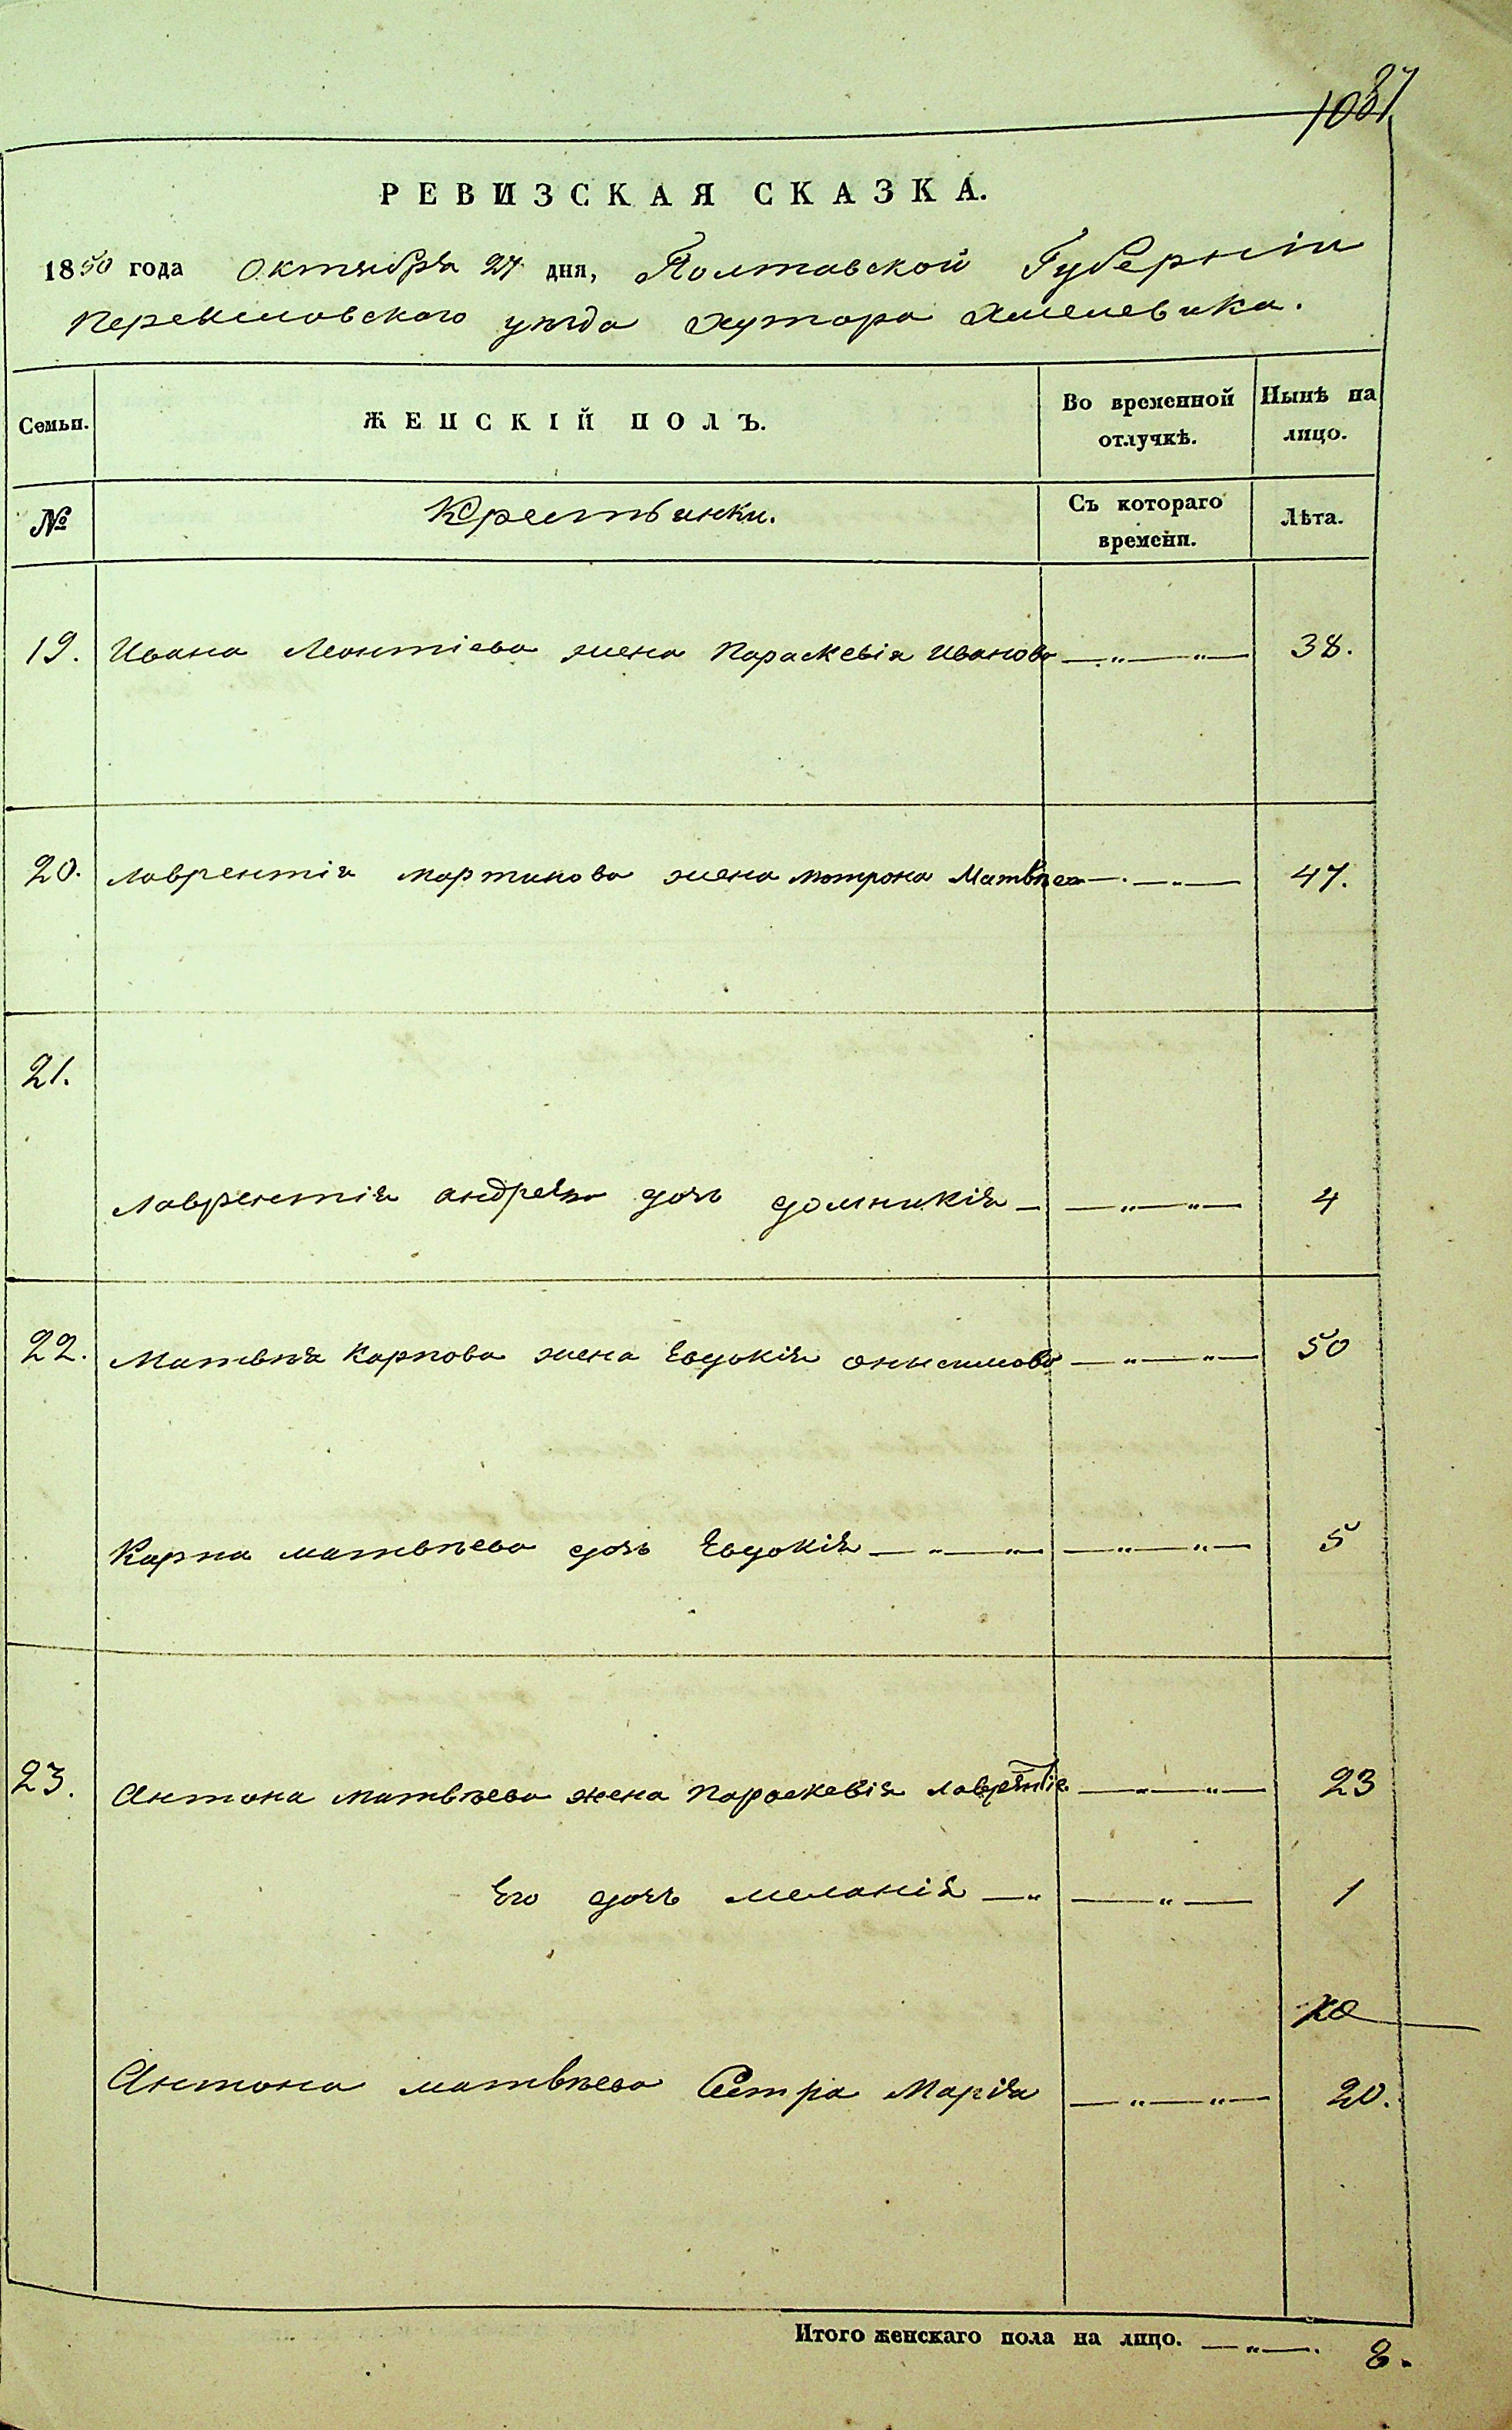 РЕВИЗСКАЯ СКАЗКА.
1850 года Октября 27 дня, Полтавской Губерніи
Переяславского уѣзда Хутора Хмелевика.
Семьи. ЖЕНСКІЙ ПОЛЪ. Во временной отлучкѣ. Нынѣ на лицо.
№ Крестьянки. Съ котораго времени. Лѣта.
19. Ивана Леонтіева жена Параскевія Иванова —„—„— 38.
20. Лаврентія Мартинова жена Мотрона Матвѣев —„— 47.
21.
Лаврентія Андреева дочь Домникія — —„—„— 4
22. Матвѣя Карпова жена Евдокія Онысимова —„—„— 50
Карпа Матвѣева дочь Евдокія —„—„— —„—„— 5
23. Антона Матвѣева жена Параскевія Лаврентіе —„—„— 23
Его дочь Меланія —„ —„— 1
Антона Матвѣева Сестра Марія —„—„— 20.
Итого женскаго пола на лицо. —„—. 8.